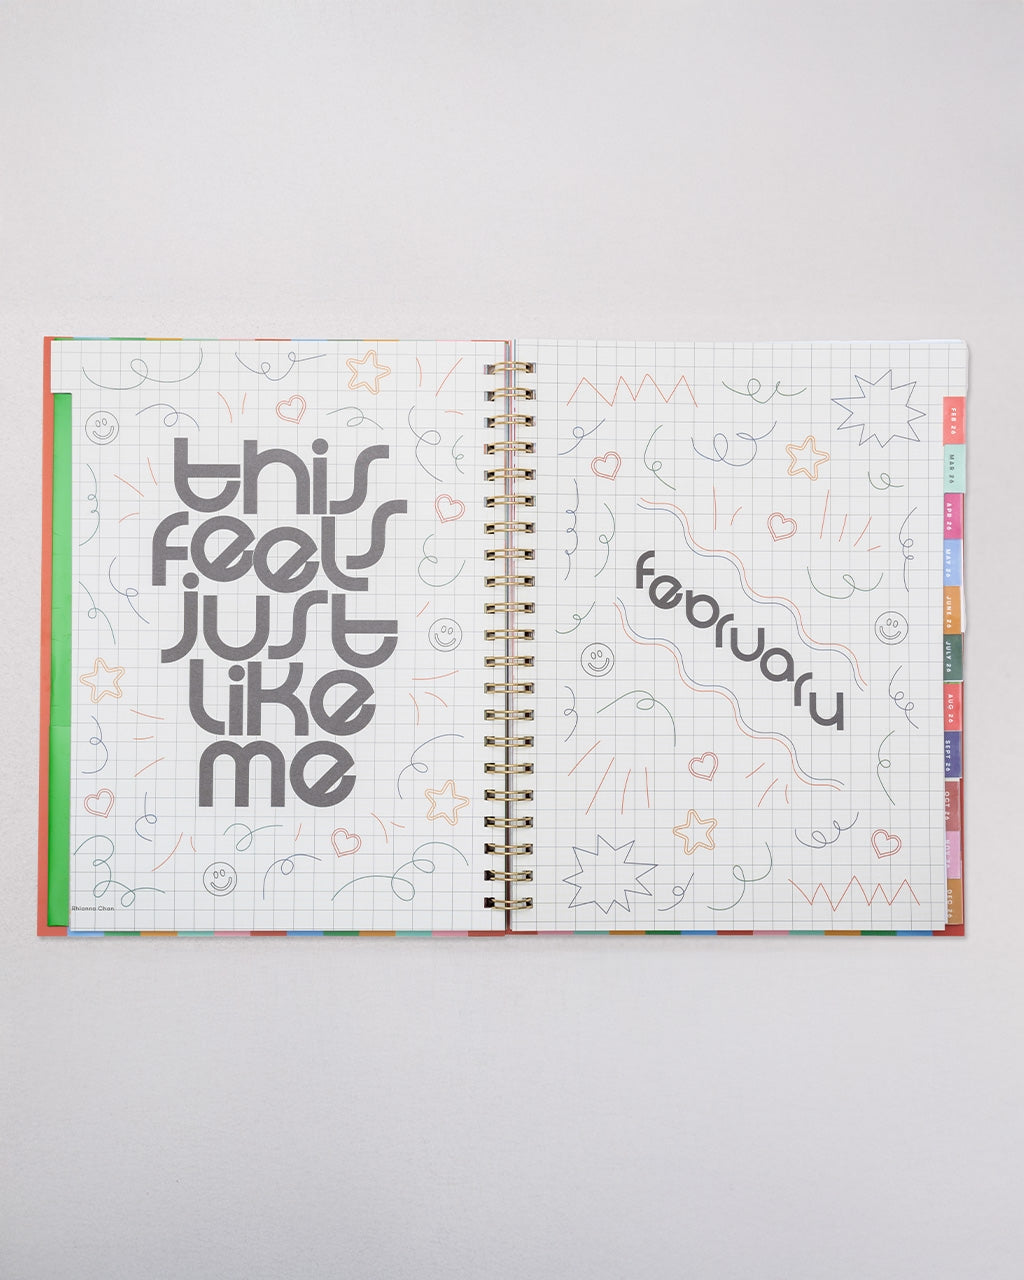 this
feels
just
like
me
Rhianna Chan
february
FEB 26
MAR 26
APR 26
MAY 26
JUNE 26
JULY 26
AUG 26
SEPT 26
OCT 26
NOV 26
DEC 26